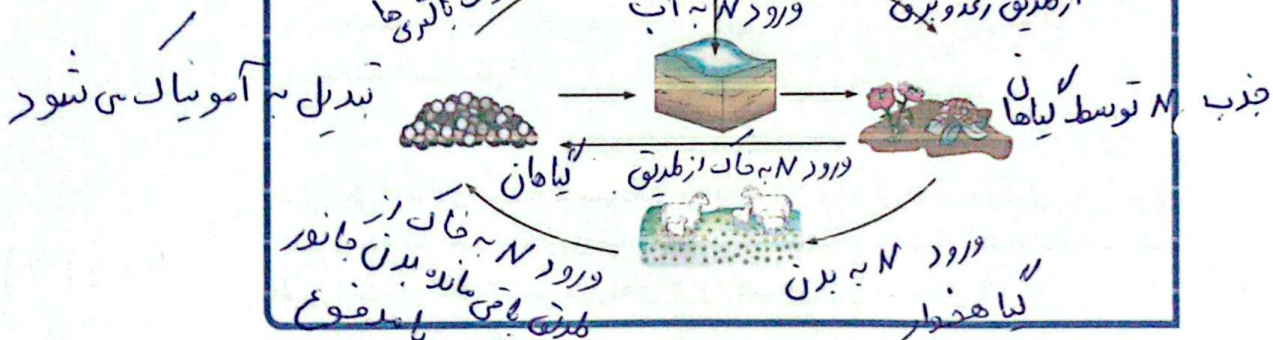 باکتری ها
ورود N به آب
از طریق رعد و برق
تبدیل به آمونیاک می شود
جذب N توسط گیاهان
ورود N به خاک از طریق
گیاهان
ورود N به خاک از
طریق باقی مانده بدن جانور
یا مدفوع
ورود N به بدن
گیاهخوار